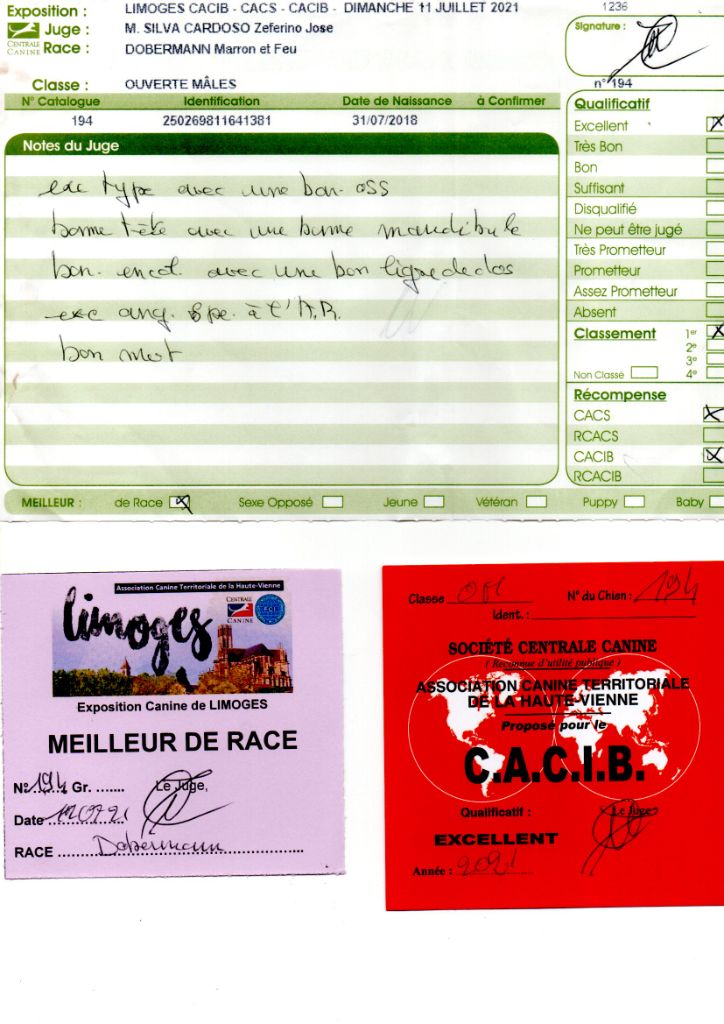 Exposition : LIMOGES CACIB - CACS - CACIB - DIMANCHE 11 JUILLET 2021 1236
CENTRALE CANINE
Juge : M. SILVA CARDOSO Zeferino Jose
Race : DOBERMANN Marron et Feu
Signature :
Classe : OUVERTE MÂLES
n° 194
N° Catalogue Identification Date de Naissance à Confirmer
194 250269811641381 31/07/2018
Notes du Juge
exc type avec une bon. oss
bonne tête avec une bonne mandibule
bon. encol. avec une bon ligne de dos
exc ang. spe. à l'A.R.
bon mot
Qualificatif
Excellent X
Très Bon
Bon
Suffisant
Disqualifié
Ne peut être jugé
Très Prometteur
Prometteur
Assez Prometteur
Absent
Classement 1er X
2e
3e
Non Classé 4e
Récompense
CACS X
RCACS
CACIB X
RCACIB
MEILLEUR : de Race X Sexe Opposé Jeune Vétéran Puppy Baby
Association Canine Territoriale de la Haute-Vienne
limoges
CENTRALE CANINE
FCI
Exposition Canine de LIMOGES
MEILLEUR DE RACE
N° 194 Gr. ....... Le Juge,
Date
RACE Dobermann
Classe N° du Chien : 194
Ident. :
SOCIÉTÉ CENTRALE CANINE
( Reconnue d'utilité publique )
ASSOCIATION CANINE TERRITORIALE
DE LA HAUTE-VIENNE
Proposé pour le
C.A.C.I.B.
Qualificatif : Le Juge
EXCELLENT
Année : 2021